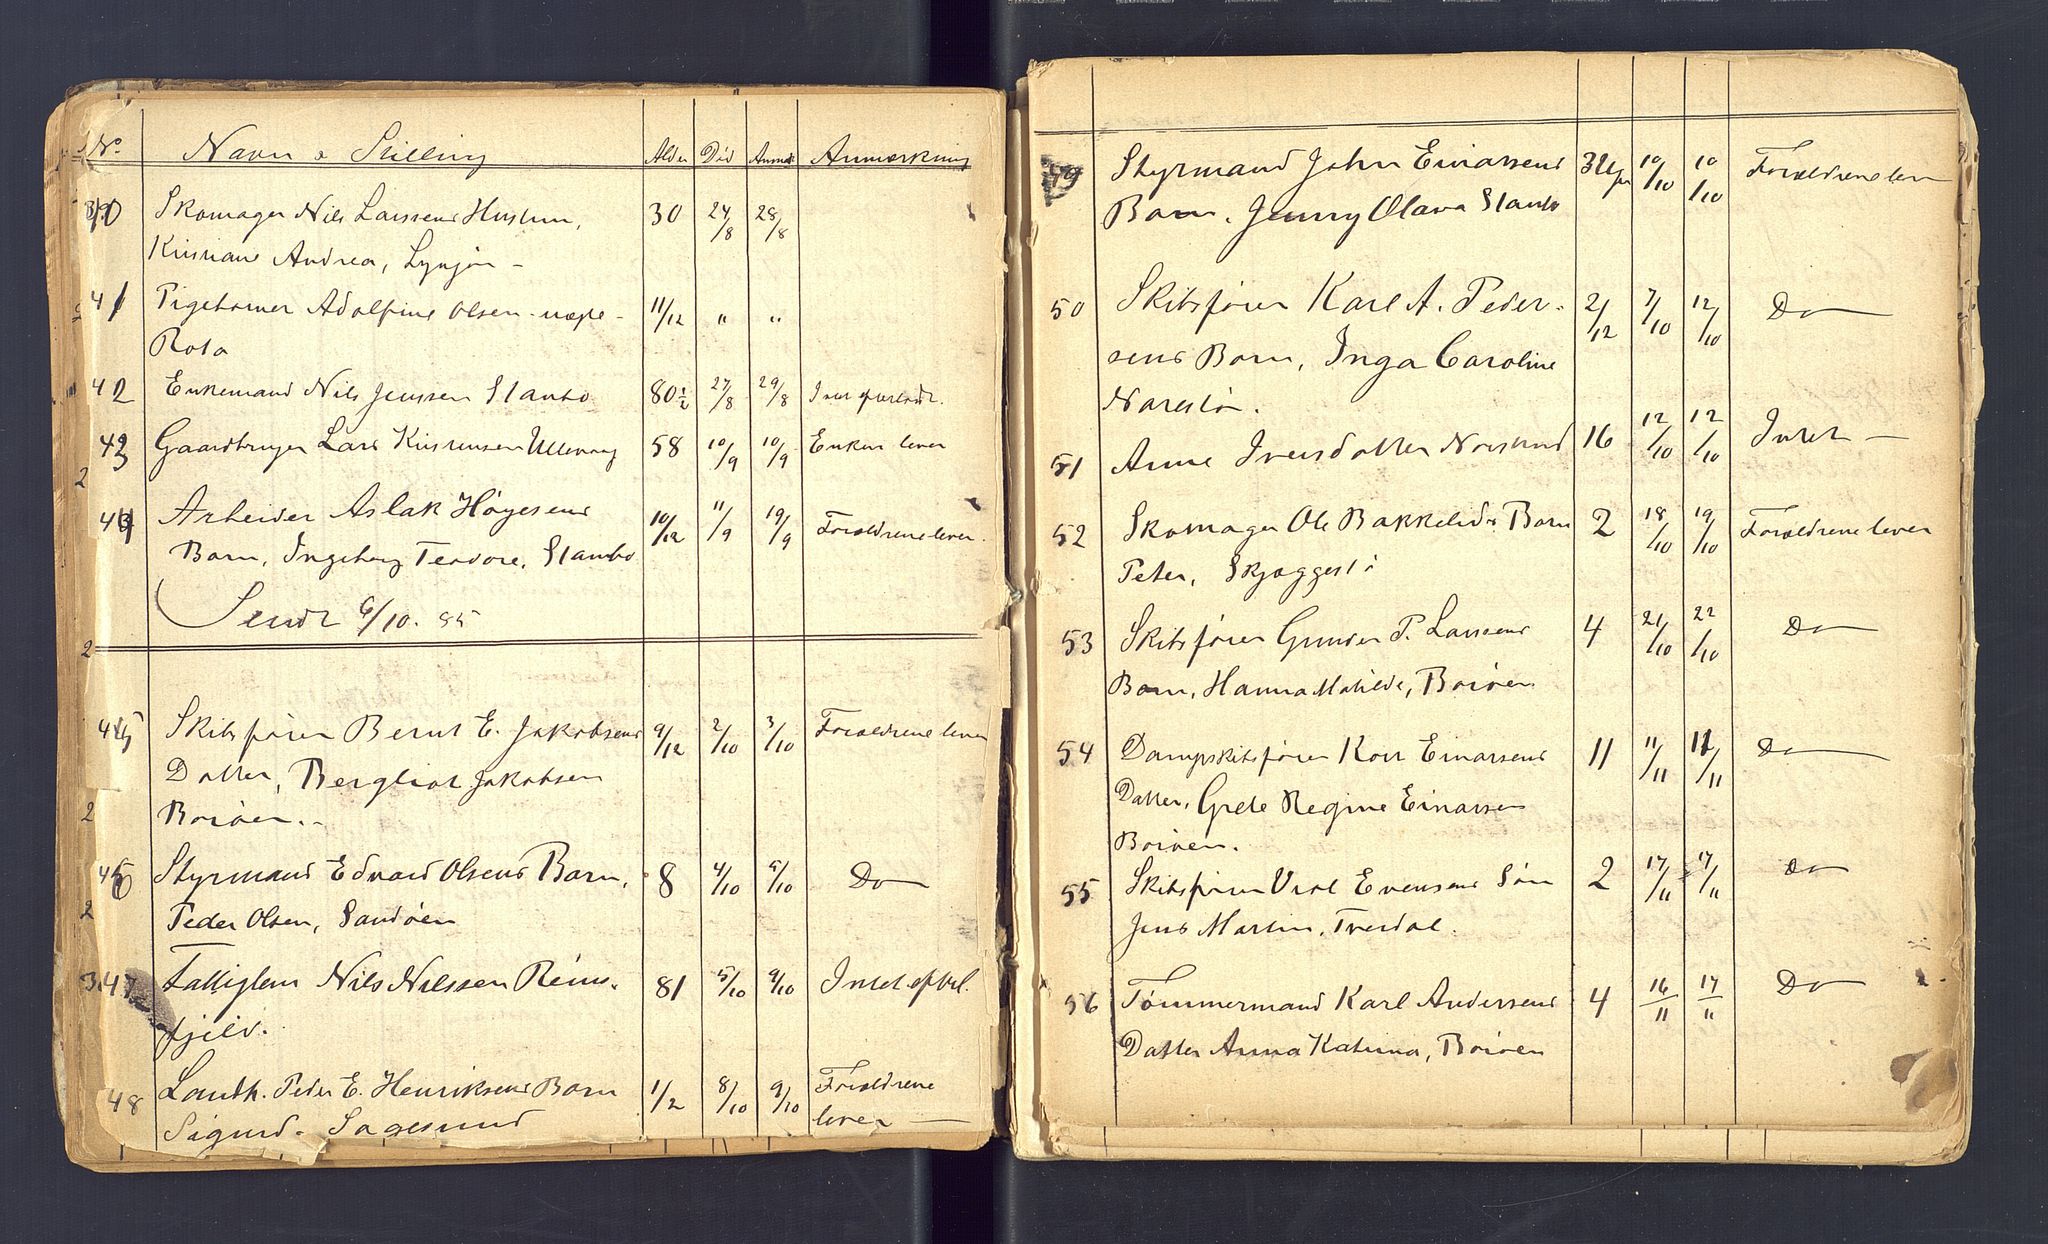 No. Navn & Stilling Alder Død Anm. Anmærkning
40 Skomager Nils Larssens Hustru, 30 24/8 28/8
Andrea, Lyngør –
41 Pigebarnet Adolfine Olsen 11/12 " "
Rota
42 Enkemand Nils Jenssen Stanbo 80½ 27/8 29/8
43 Gaardbruger Lars Kristensen Ullevaag 58 10/9 10/9 Enken lever
44 Arbeider Aslak Høgesens 10/12 11/9 19/9 Forældrene lever.
Barn, Ingeborg Teodore, Stanbo
Sendt 6/10. 85
45 Skibsfører Bernt E. Jakobsens 9/12 2/10 3/10 Forældrene lever
Datter, Bergliot Jakobsen
Borøen. –
46 Styrmand Edvard Olsens Barn, 8 4/10 5/10 Do
Peder Olsen, Sandøen
47 Fattiglem Nils Nilssen 81 5/10 9/10 Intet efterl.
fjeld.
48 Landh. Peder E. Henriksens Barn 1/2 8/10 9/10 Forældrene
Sigurd. Sagesund lever —
49 Styrmand John Einarsens 10/10 10/10 Forældrene lever
Barn, Jenny Olava Stanbo
50 Skibsfører Karl A. Peder- 2/12 7/10 12/10 Do
sens Barn, Inga Caroline
Narestø.
51 Anne Iversdatter 16 12/10 12/10 Intet —
52 Skomager Ole Bakkelids Barn 2 18/10 19/10 Forældrene lever
Peter, Skjæggestø
53 Skibsfører Gunder P. Larssens 4 21/10 22/10 Do
Barn, Hanna Matilde, Borøen
54 Dampskibsfører Einarsens 11 11/11 12/11 Do
Datter, Grete Regine Einarsen
Borøen.
55 Skibsfører Evensens Søn 2 17/11 17/11 Do
Jens Martin, Tverdal.
56 Tømmermand Karl Andersens 4 16/11 17/11 Do
Datter Anna Katrina, Borøen